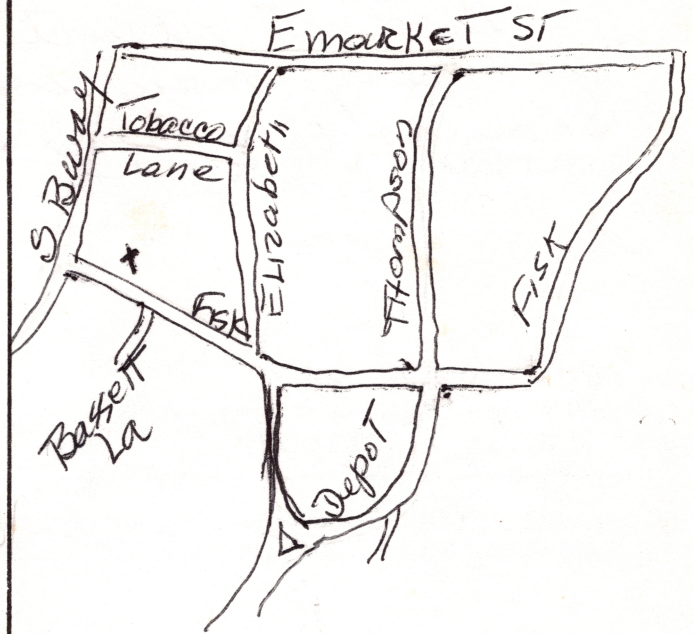 E market ST
Tobacco
Lane
S Bway
Elizabeth
Thompson
Fisk
x
Fisk
Bassett
La
Depot